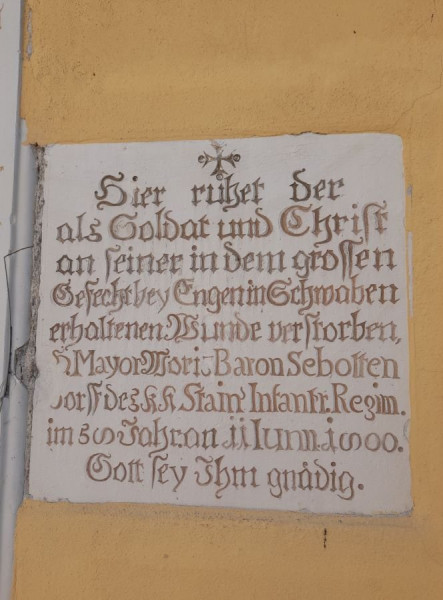 Hier ruhet der
als Soldat und Christ
an seiner in dem grossen
Gefecht bey Engen in Schwaben
erhaltenen Wunde verstorben,
Mayor Mori Baron Sebotten
orff des k.k. Stain Infantr. Regim.
im Jahr an 11 Iunn 1800.
Gott sey Ihm gnädig.